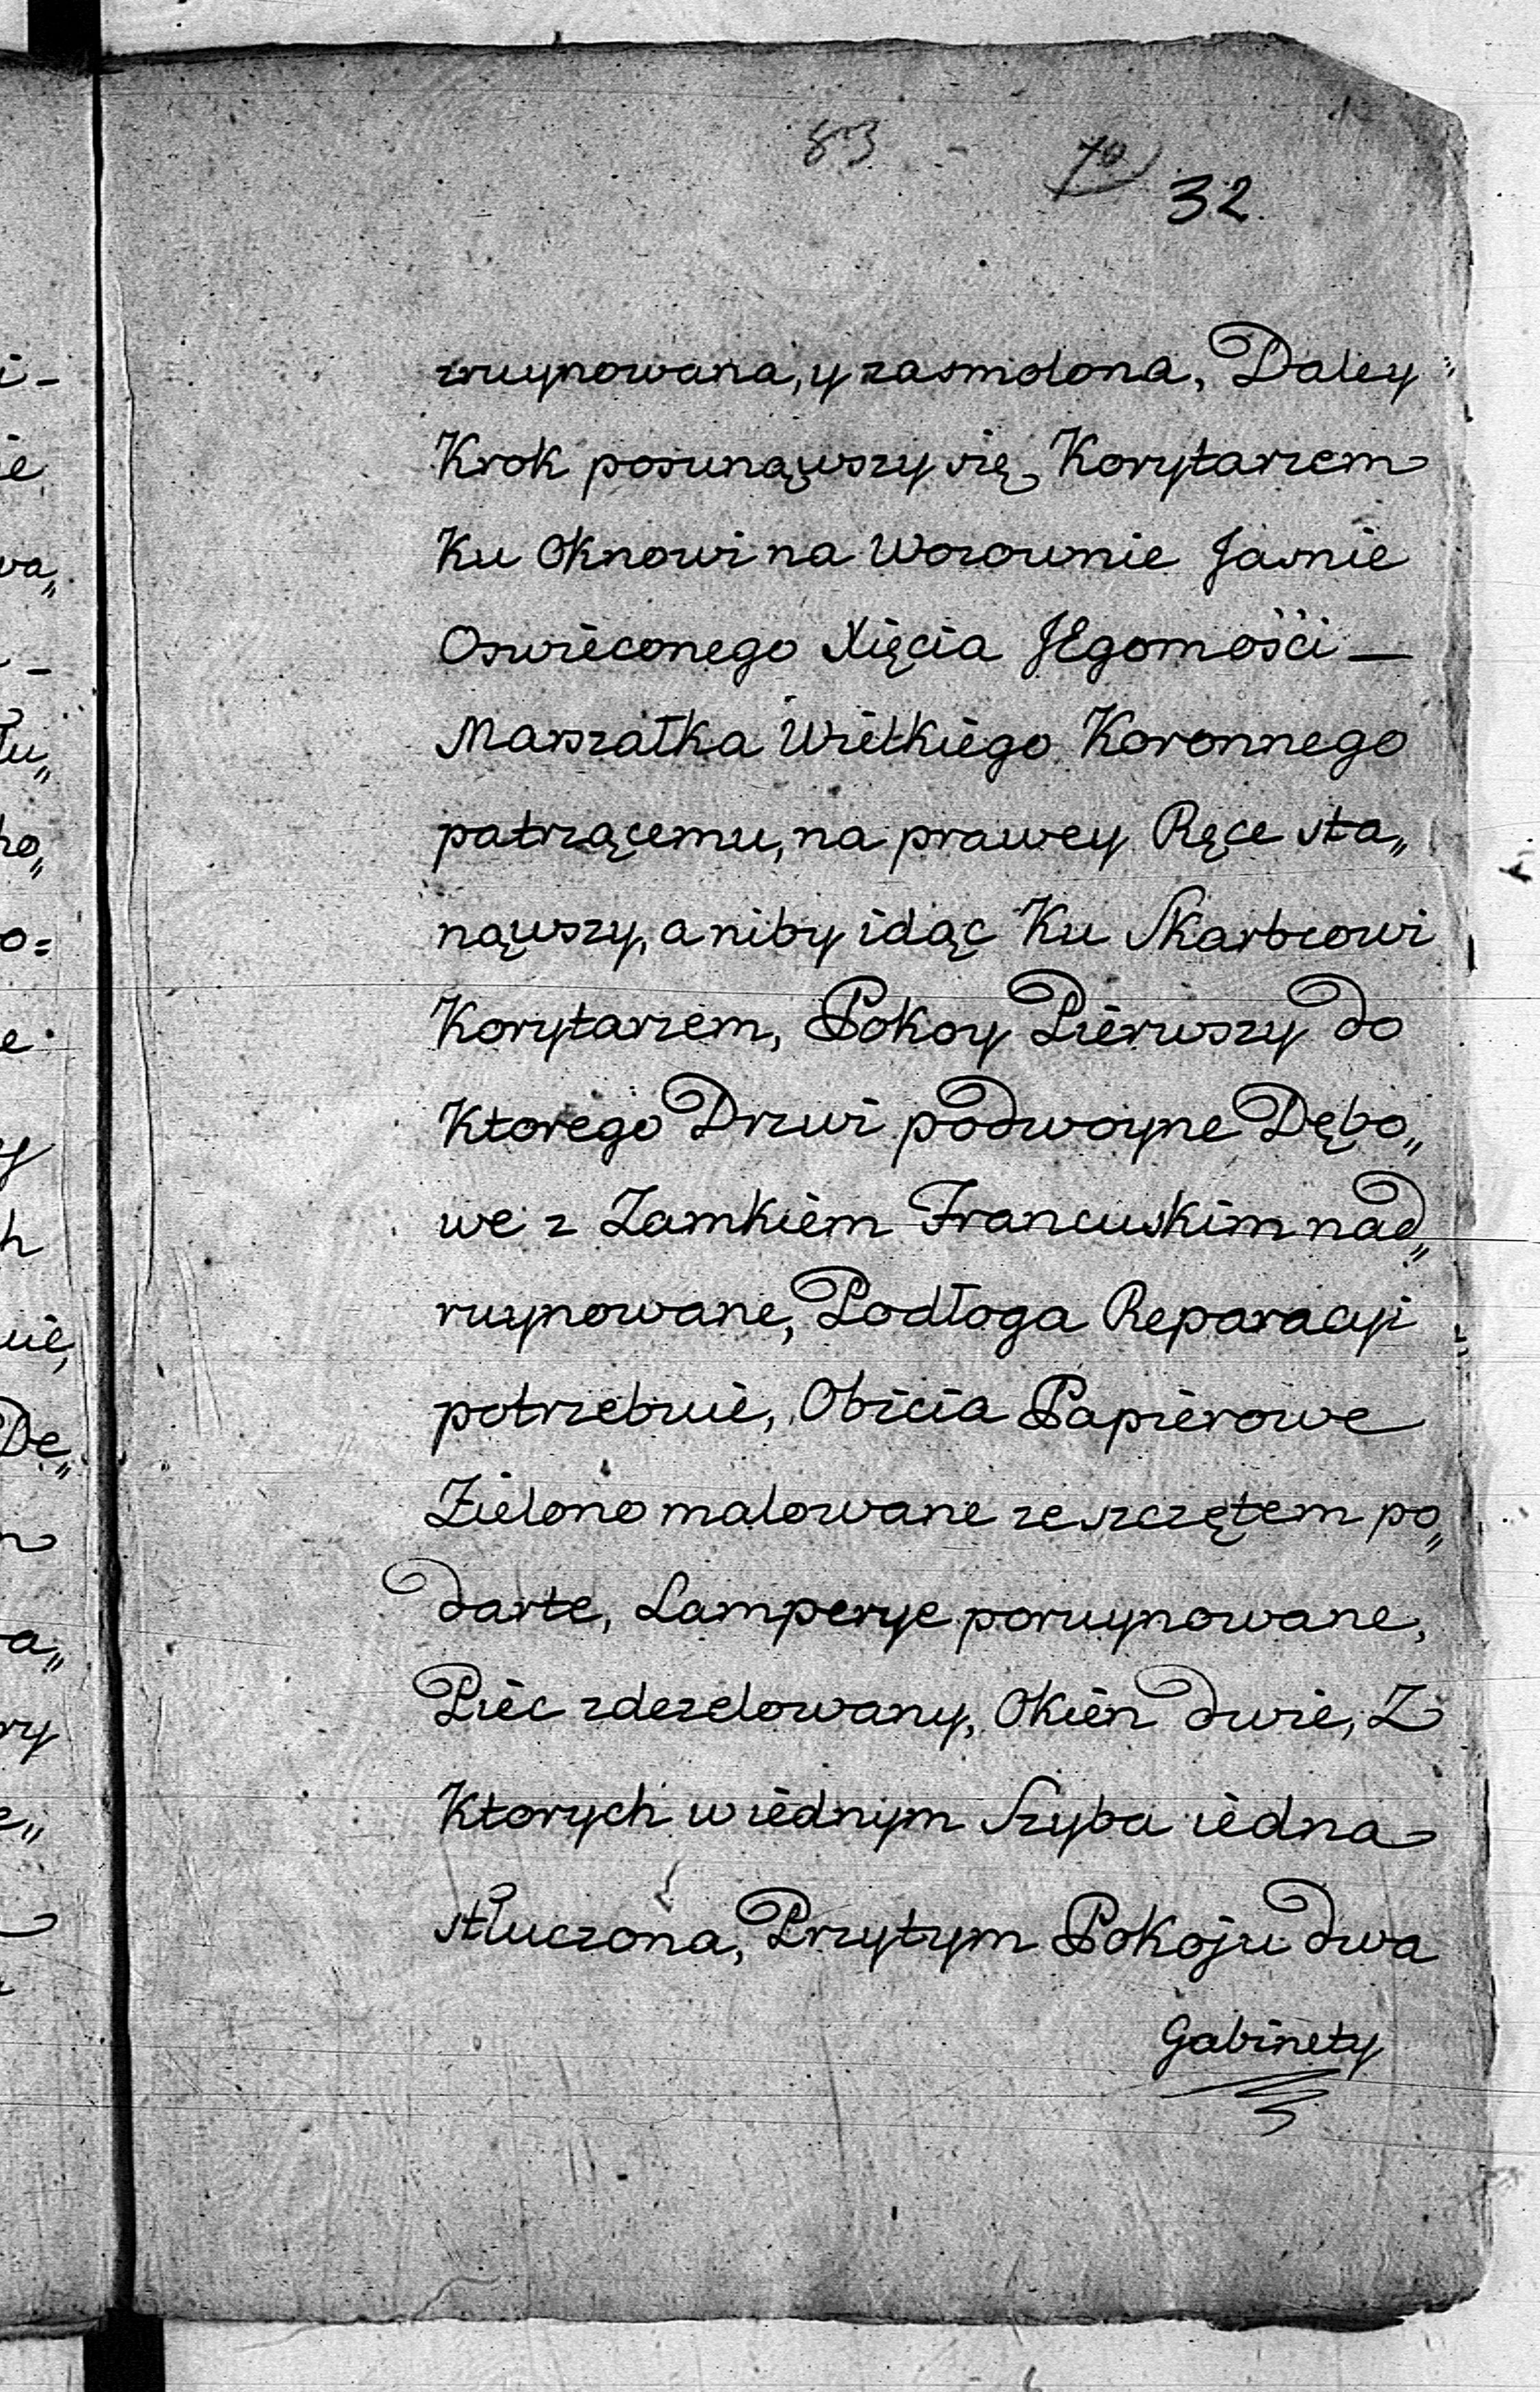 83 70 32.
zruynowana, y zasmolona, Daley
Krok posunąwszy się Korytarzem
Ku Oknowi na Wozownie Jasnie
Oswieconego Xięcia JEgomości —
Marszałka Wielkiego Koronnego
patrzącemu, na prawey Ręce sta„
nąwszy, a niby idąc Ku Skarbcowi
Korytarzem, Pokoy Pierwszy do
Ktorego Drzwi podwoyne Dębo„
we z Zamkiem Francuskim nad„
ruynowane, Podłoga Reparacyi
potrzebuie, Obicia Papierowe
Zielono malowane ze szczętem po„
darte, Lamperye poruynowane,
Piec zdezelowany, Okien dwie, Z
Ktorych w iednym Szyba iedna
stłuczona, Przytym Pokoju dwa
Gabinety